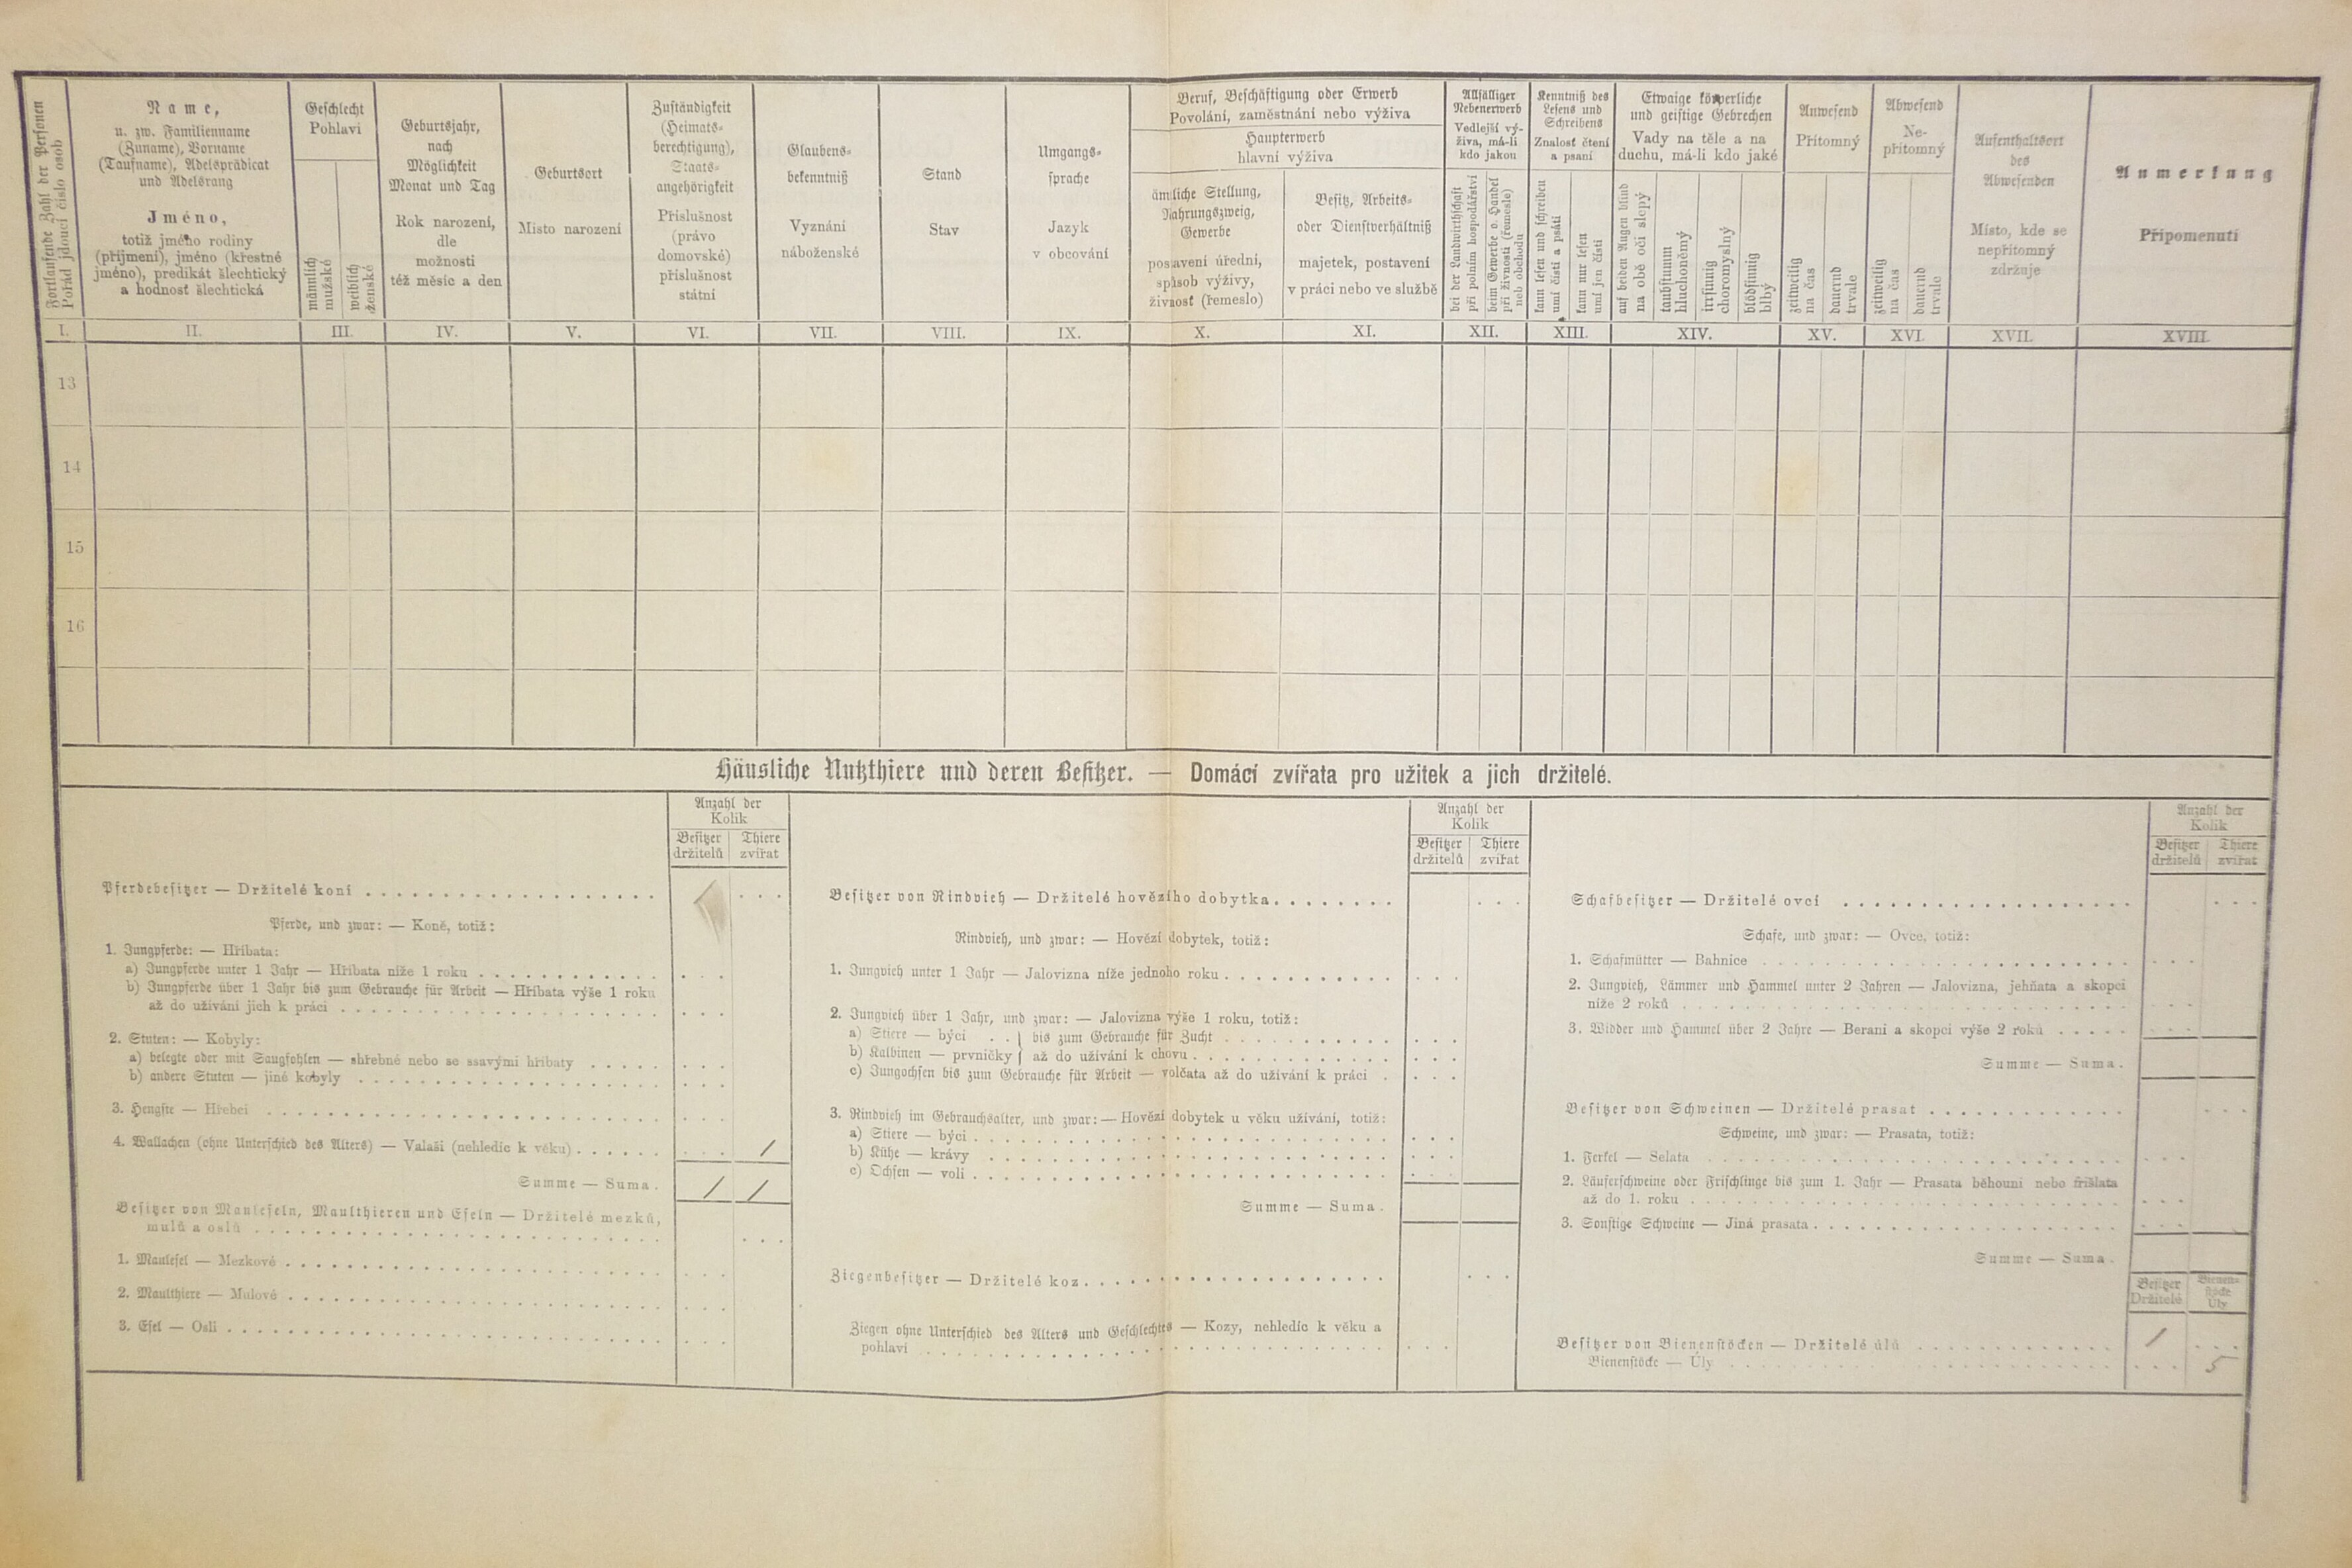 Fortlaufende Zahl der Personen
Pořád jdoucí číslo osob
Name,
u. zw. Familienname
(Zuname), Vorname
(Taufname), Adelsprädicat
und Adelsrang
Jméno,
totiž jméno rodiny
(příjmení), jméno (křestné
jméno), predikát šlechtický
a hodnosť šlechtická
Geschlecht
Pohlaví
männlich
mužské
weiblich
ženské
Geburtsjahr,
nach
Möglichkeit
Monat und Tag
Rok narození,
dle
možnosti
též měsíc a den
Geburtsort
Místo narození
Zuständigkeit
(Heimats-
berechtigung),
Staats-
angehörigkeit
Příslušnost
(právo
domovské)
příslušnost
státní
Glaubens-
bekenntniß
Vyznání
náboženské
Stand
Stav
Umgangs-
sprache
Jazyk
v obcování
Beruf, Beschäftigung oder Erwerb
Povolání, zaměstnání nebo výživa
Haupterwerb
hlavní výživa
ämtliche Stellung,
Nahrungszweig,
Gewerbe
postavení úřední,
spůsob výživy,
živnosť (řemeslo)
Besitz, Arbeits-
oder Dienstverhältniß
majetek, postavení
v práci nebo ve službě
Allfälliger
Nebenerwerb
Vedlejší vý-
živa, má-li
kdo jakou
bei der Landwirthschaft
při polním hospodářství
beim Gewerbe o. Handel
při živnosti (řemesle)
neb obchodu
Kenntniß des
Lesens und
Schreibens
Znalosť čtení
a psaní
kann lesen und schreiben
umí čísti a psáti
kann nur lesen
umí jen čísti
Etwaige körperliche
und geistige Gebrechen
Vady na těle a na
duchu, má-li kdo jaké
auf beiden Augen blind
na obě oči slepý
taubstumm
hluchoněmý
irrsinnig
choromyslný
blödsinnig
blbý
Anwesend
Přítomný
zeitweilig
na čas
dauernd
trvale
Abwesend
Ne-
přítomný
zeitweilig
na čas
dauernd
trvale
Aufenthaltsort
des
Abwesenden
Místo, kde se
nepřítomný
zdržuje
Anmerkung
Připomenutí
I. II. III. IV. V. VI. VII. VIII. IX. X. XI. XII. XIII. XIV. XV. XVI. XVII. XVIII.
13
14
15
16
Häusliche Nutzthiere und deren Besitzer. — Domácí zvířata pro užitek a jich držitelé.
Anzahl der
Kolik
Besitzer Thiere
držitelů zvířat
Pferdebesitzer — Držitelé koní
Pferde, und zwar: — Koně, totiž:
1. Jungpferde: — Hříbata:
a) Jungpferde unter 1 Jahr — Hříbata níže 1 roku
b) Jungpferde über 1 Jahr bis zum Gebrauche für Arbeit — Hříbata výše 1 roku
až do užívání jich k práci
2. Stuten: — Kobyly:
a) belegte oder mit Saugfohlen — shřebné nebo se ssavými hříbaty
b) andere Stuten — jiné kobyly
3. Hengste — Hřebci
4. Wallachen (ohne Unterschied des Alters) — Valaši (nehledíc k věku) /
Summe — Suma. / /
Besitzer von Mauleseln, Maulthieren und Eseln — Držitelé mezků,
mulů a oslů
1. Maulesel — Mezkové
2. Maulthiere — Mulové
3. Esel — Osli
Anzahl der
Kolik
Besitzer Thiere
držitelů zvířat
Besitzer von Rindvieh — Držitelé hovězího dobytka
Rindvieh, und zwar: — Hovězí dobytek, totiž:
1. Jungvieh unter 1 Jahr — Jalovizna níže jednoho roku
2. Jungvieh über 1 Jahr, und zwar: — Jalovizna výše 1 roku, totiž:
a) Stiere — býci . . } bis zum Gebrauche für Zucht
b) Kalbinen — prvničky } až do užívání k chovu
c) Jungochsen bis zum Gebrauche für Arbeit — volčata až do užívání k práci
3. Rindvieh im Gebrauchsalter, und zwar: — Hovězí dobytek u věku užívání, totiž:
a) Stiere — býci
b) Kühe — krávy
c) Ochsen — voli
Summe — Suma.
Ziegenbesitzer — Držitelé koz
Ziegen ohne Unterschied des Alters und Geschlechtes — Kozy, nehledíc k věku a
pohlaví
Anzahl der
Kolik
Besitzer Thiere
držitelů zvířat
Schafbesitzer — Držitelé ovcí
Schafe, und zwar: — Ovce, totiž:
1. Schafmütter — Bahnice
2. Jungvieh, Lämmer und Hammel unter 2 Jahren — Jalovizna, jehňata a skopci
níže 2 roků
3. Widder und Hammel über 2 Jahre — Berani a skopci výše 2 roků
Summe — Suma.
Besitzer von Schweinen — Držitelé prasat
Schweine, und zwar: — Prasata, totiž:
1. Ferkel — Selata
2. Läuferschweine oder Frischlinge bis zum 1. Jahr — Prasata běhouni nebo frišlata
až do 1. roku
3. Sonstige Schweine — Jiná prasata
Summe — Suma.
Besitzer Bienen-
Držitelé stöcke
Úly
Besitzer von Bienenstöcken — Držitelé úlů 1
Bienenstöcke — Úly 5